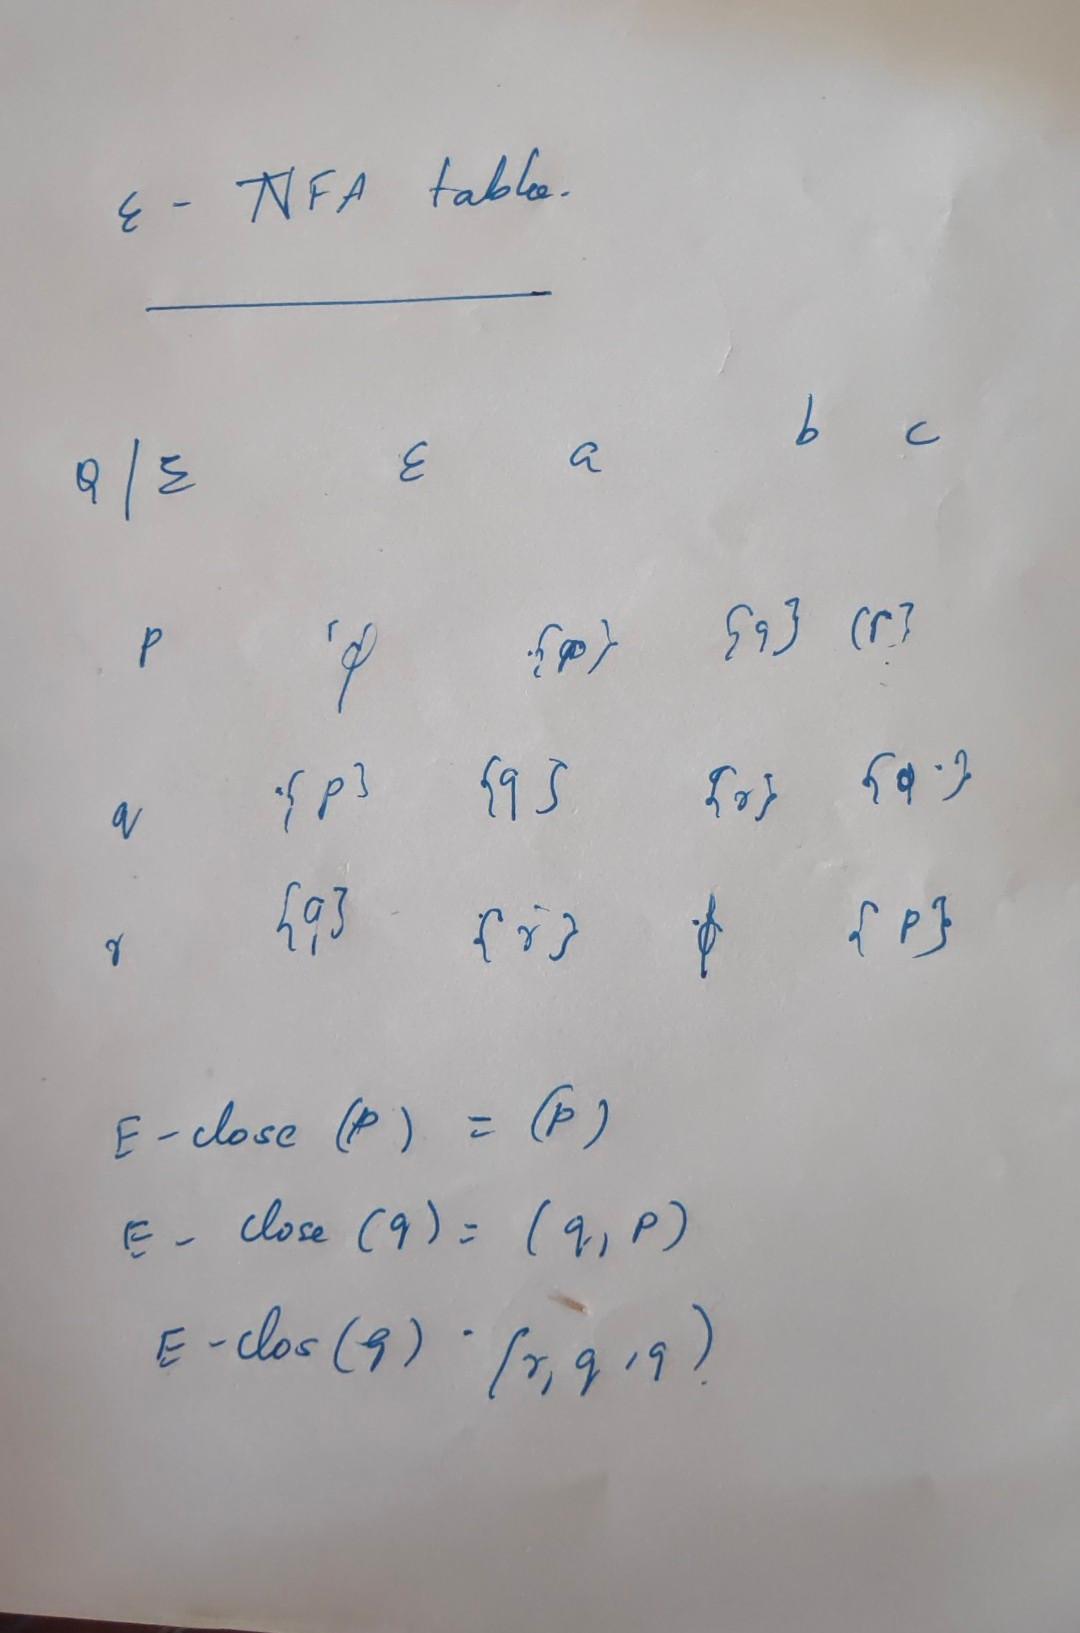 ε - NFA table.
Q/Σ ε a b c
p ϕ {p} {q} {r}
q {p} {q} {r} {ϕ}
r {q} {r} ϕ {p}
E-close (P) = (P)
E - close (q) = (q, P)
E-clos (q) · (r, q, q)